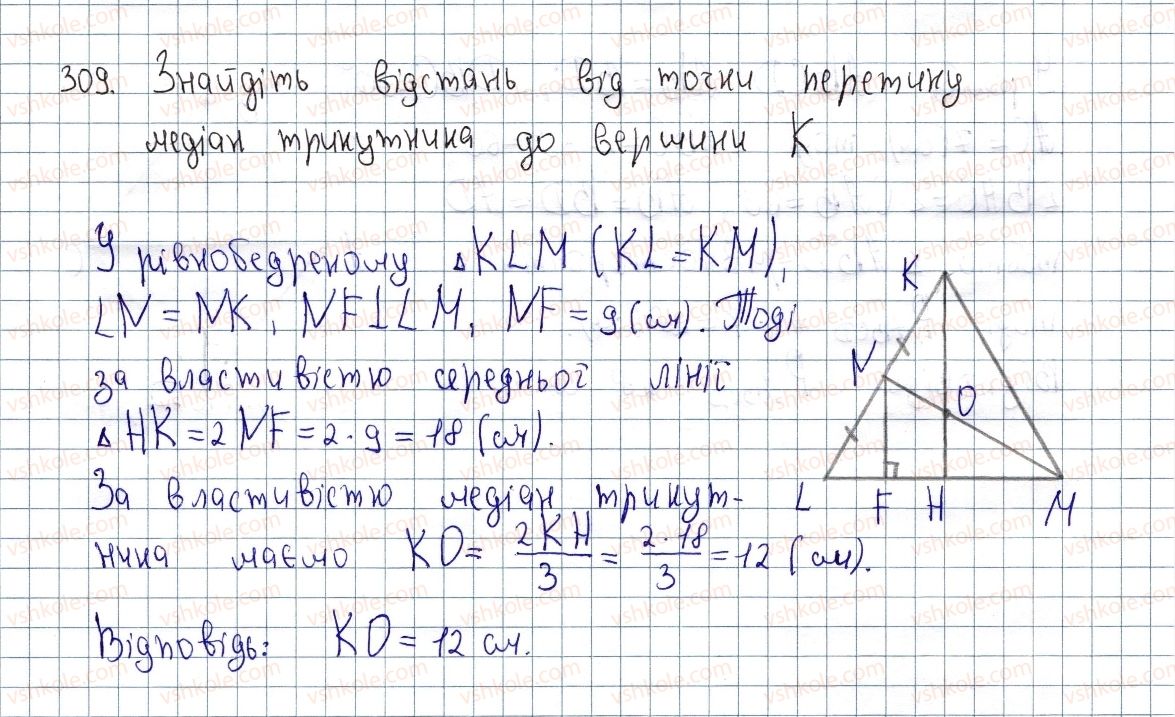 309. Знайдіть відстань від точки перетину
медіан трикутника до вершини К
У рівнобедреному △KLM (KL=KM),
LN = NK, NF⊥LM, NF = 9 (см). Тоді
за властивістю середньої лінії
△ HK = 2 NF = 2 · 9 = 18 (см).
За властивістю медіан трикут-
ника маємо KO = 2KH/3 = 2·18/3 = 12 (см).
Відповідь: KO = 12 см.
K
N
O
L F H M
vshkole.com